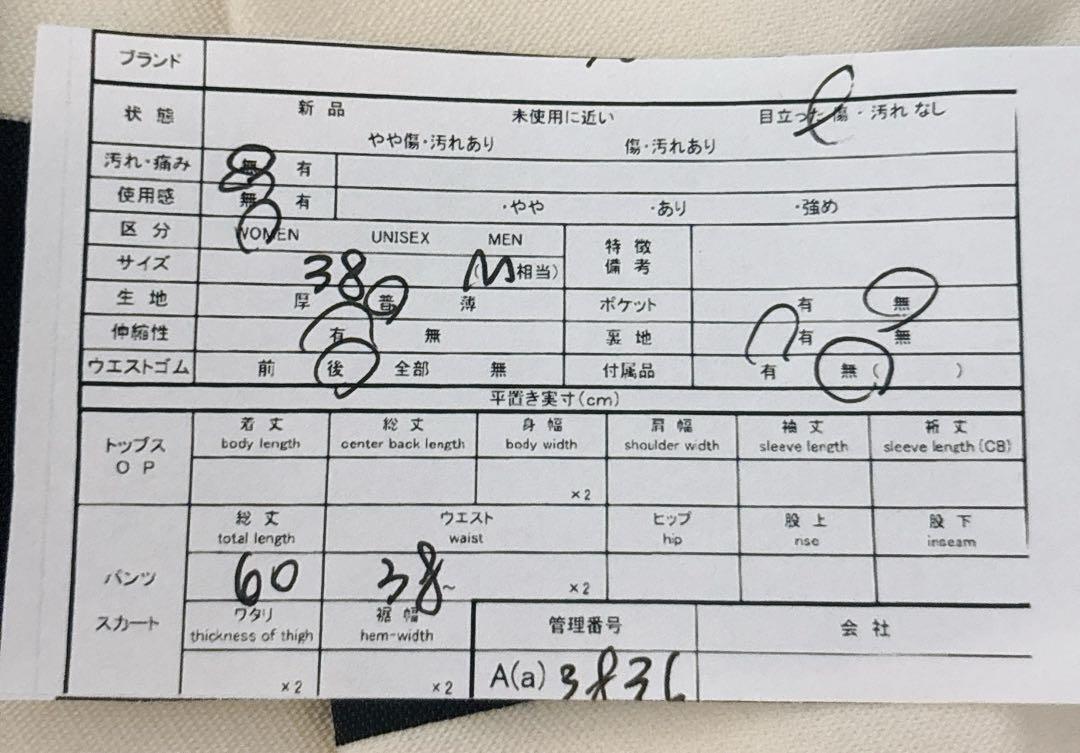 ブランド
状態 新品 未使用に近い 目立った傷・汚れなし
やや傷・汚れあり 傷・汚れあり
汚れ・痛み 無 有
使用感 無 有 ・やや ・あり ・強め
区分 WOMEN UNISEX MEN 特徴備考
サイズ 38 (M相当)
生地 厚 普 薄 ポケット 有 無
伸縮性 有 無 裏地 有 無
ウエストゴム 前 後 全部 無 付属品 有 無( )
平置き実寸(cm)
トップス OP 着丈 総丈 身幅 肩幅 袖丈 裄丈
body length center back length body width shoulder width sleeve length sleeve length(CB)
×2
総丈 ウエスト ヒップ 股上 股下
total length waist hip rise inseam
パンツ 60 38~ ×2
スカート ワタリ 裾幅 管理番号 会社
thickness of thigh hem-width
×2 ×2 A(a) 3836